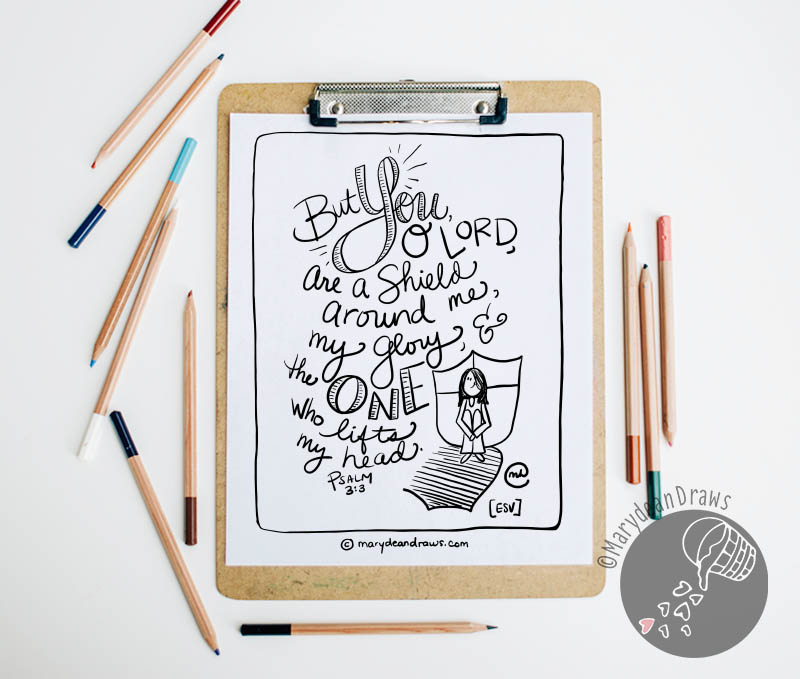 But You,
O LORD,
are a Shield
around me,
my glory, &
the ONE
who lifts
my head.
PSALM
3:3
md
[ESV]
© marydeandraws.com
©MarydeanDraws